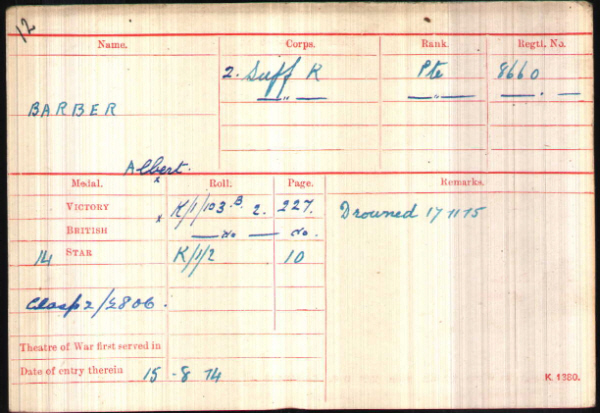 12
Name. Corps. Rank. Regtl. No.
2. Suff R Pte 8660
BARBER — " — — " — — " —
Albert.
Medal. Roll. Page. Remarks.
VICTORY K/1/103.B 2. 227. Drowned 17 11 15
BRITISH — do — do.
14 STAR K/1/2 10
Clasp 2/2806.
Theatre of War first served in
Date of entry therein 15 - 8 14
K. 1380.